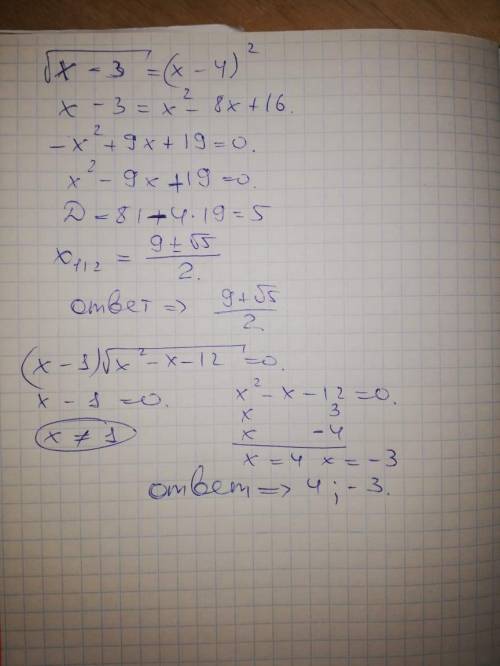 √(x - 3) = (x - 4)²
x - 3 = x² - 8x + 16.
-x² + 9x + 19 = 0.
x² - 9x + 19 = 0.
D = 81 - 4·19 = 5
x₁,₂ = (9 ± √5)/2.
ответ => (9 + √5)/2.
(x - 1)√(x² - x - 12) = 0.
x - 1 = 0. x² - x - 12 = 0.
x 3
x ≠ 1 x -4
x = 4 x = -3
ответ => 4; -3.